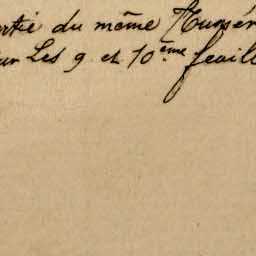 rtie du même Numér
ur Les 9 et 10ème feuill